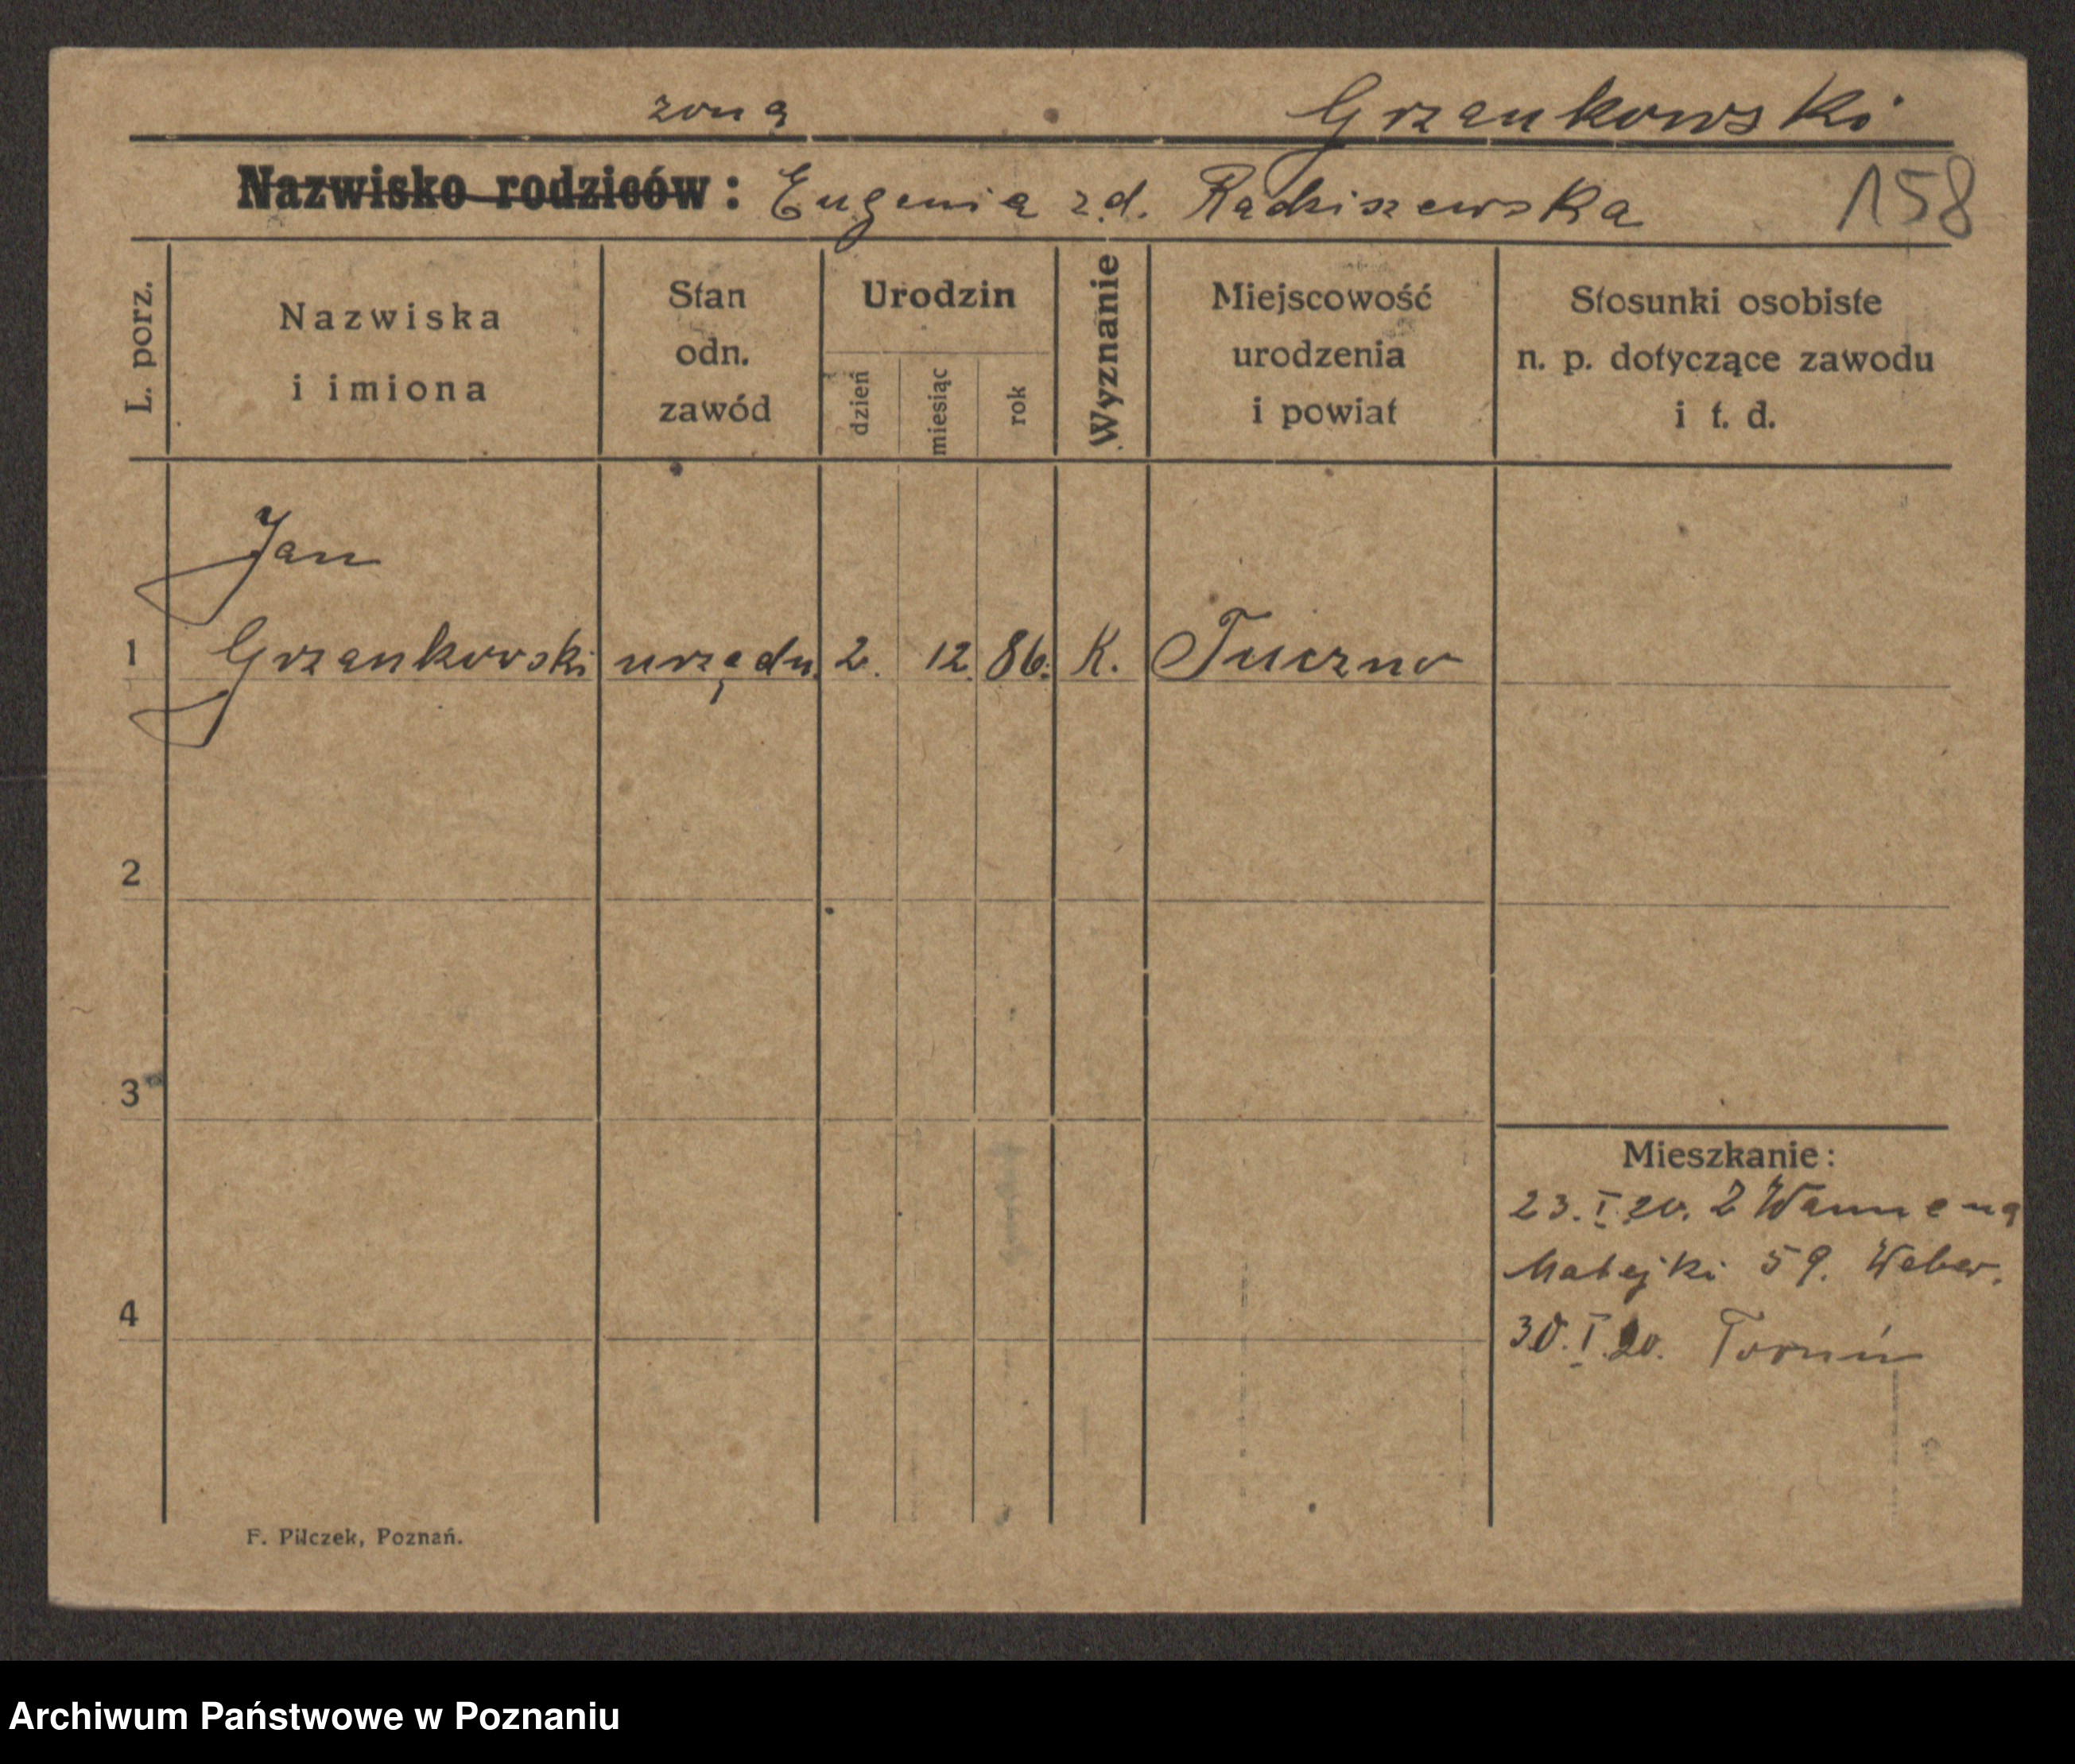 żoną Grzankowski
Nazwisko rodziców: Eugenia z d. Radziszewska 158
L. porz.
Nazwiska
i imiona
Stan
odn.
zawód
Urodzin
dzień
miesiąc
rok
Wyznanie
Miejscowość
urodzenia
i powiat
Stosunki osobiste
n. p. dotyczące zawodu
i t. d.
Jan
1 Grzankowski urzędn. 2. 12. 86. K. Tuczno
2
3
4
Mieszkanie:
23.I.20. Z Wanne na
Matejki 59. Weber.
30.I.20. Toruń
F. Pilczek, Poznań.
Archiwum Państwowe w Poznaniu